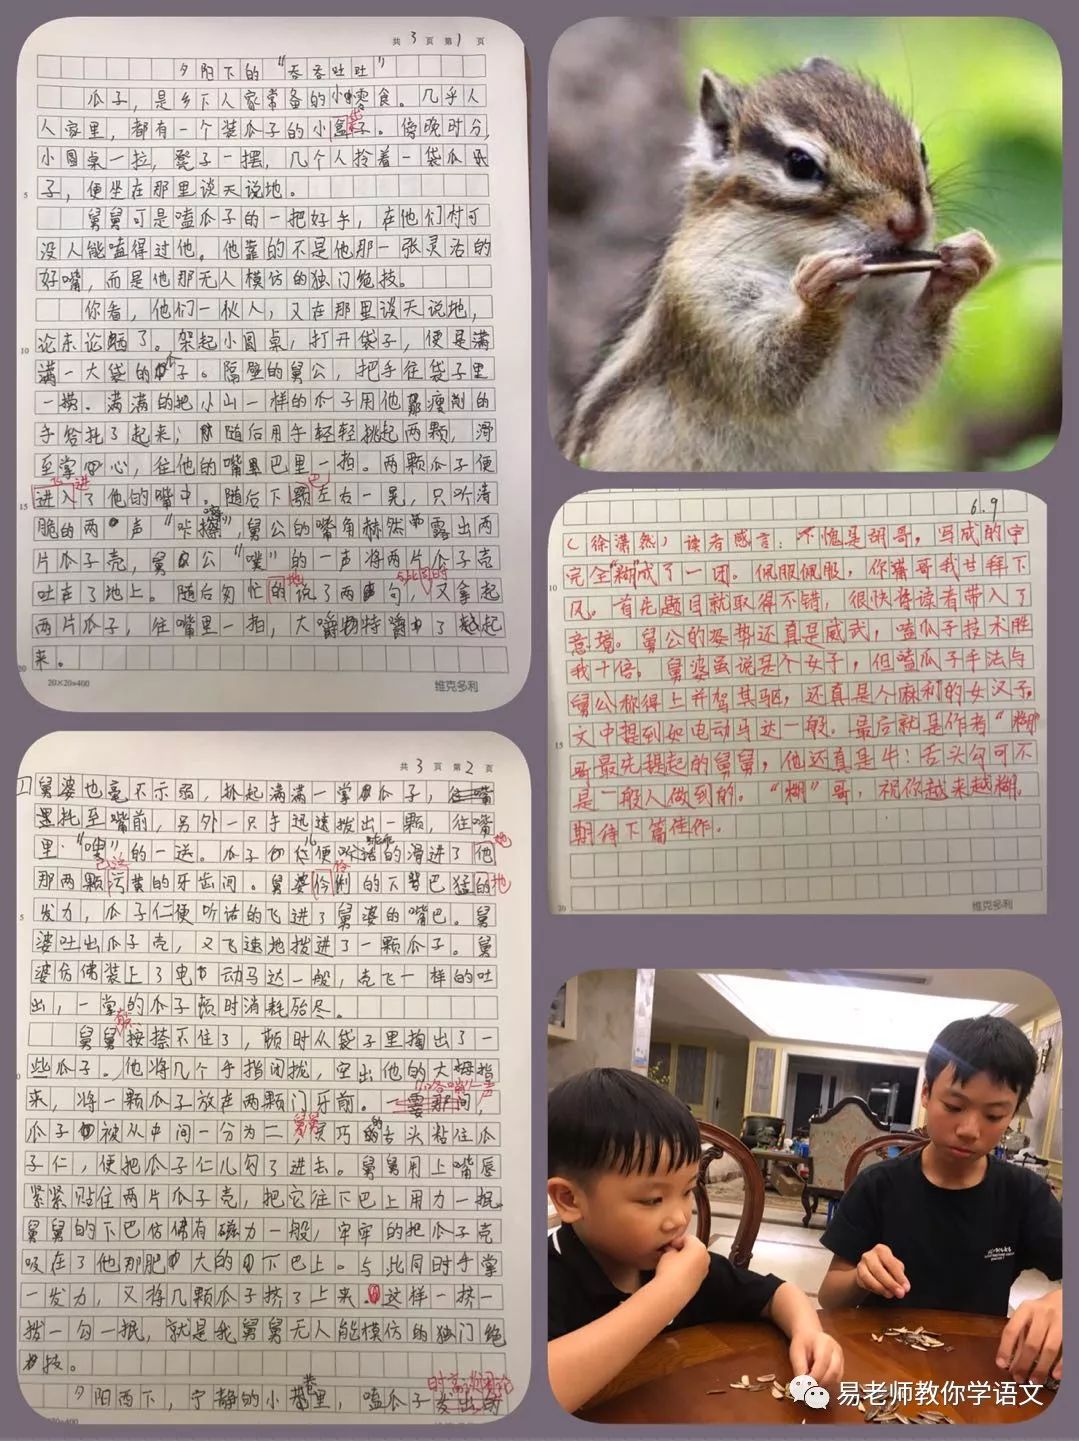 共 3 页 第 1 页
夕阳下的“吞吞吐吐”
瓜子，是乡下人家常备的小零食。几乎人
人家里，都有一个装瓜子的小盒子。傍晚时分，
小圆桌一拉，凳子一摆，几个人拎着一袋瓜
子，便坐在那里谈天说地。
舅舅可是嗑瓜子的一把好手，在他们村可
没人能嗑得过他。他靠的不是他那一张灵活的
好嘴，而是他那无人模仿的独门绝技。
你看，他们一伙人，又在那里谈天说地，
论东论西了。架起小圆桌，打开袋子，便是满
满一大袋的瓜子。隔壁的舅公，把手往袋子里
一捞。满满的把小山一样的瓜子用他瘦削的
手给托了起来；随后用手轻轻挑起两颗，滑
至掌心，往他的嘴巴里一拍。两颗瓜子便
飞进
进入了他的嘴中。随后下颚左右一晃，只听清
脆的两声“咔擦”，舅公的嘴角赫然露出两
片瓜子壳，舅公“噗”的一声将两片瓜子壳
吐在了地上。随后匆忙的说了两句，又拿起
地 与此同时
两片瓜子，往嘴里一拍，大嚼特嚼了起
来。
20×20=400
维克多利
共 3 页 第 2 页
舅婆也毫不示弱，抓起满满一掌瓜子，
托至嘴前，另外一只手迅速拨出一颗，往嘴
里“嗖”的一送。瓜子便听话的滑进了她
那两颗污黄的牙齿间。舅婆伶俐的下巴猛的地
发力，瓜子仁便听话的飞进了舅婆的嘴巴。舅
婆吐出瓜子壳，又飞速地拨进了一颗瓜子。舅
婆仿佛装上了电动马达一般，壳飞一样的吐
出，一掌的瓜子顿时消耗殆尽。
舅舅按捺不住了，顿时从袋子里掏出了一
些瓜子。他将几个手指闭拢，空出他的大拇指
来，将一颗瓜子放在两颗门牙前。一霎那间，
瓜子被从中间一分为二，舅舅灵巧的舌头粘住瓜
子仁，便把瓜子仁儿勾了进去。舅舅用上嘴唇
紧紧贴住两片瓜子壳，把它往下巴上用力一抿。
舅舅的下巴仿佛有磁力一般，牢牢的把瓜子壳
吸在了他那肥大的下巴上。与此同时手掌
一发力，又将几颗瓜子挤了上来。这样一挤一
拨一勾一抿，就是我舅舅无人能模仿的独门绝
技。
夕阳西下，宁静的小巷里，嗑瓜子发出的
6.9
（徐潇然）读者感言：不愧是胡哥，写成的字
完全“糊”成了一团。佩服佩服，你潇哥我甘拜下
风。首先题目就取得不错，很快将读者带入了
意境。舅公的姿势还真是威武，嗑瓜子技术胜
我十倍。舅婆虽说是个女子，但嗑瓜子手法与
舅公称得上并驾其驱，还真是个麻利的女汉子。
文中提到如电动马达一般。最后就是作者“糊”
哥最先提起的舅舅，他还真是牛！舌头勾可不
是一般人做到的。“糊”哥，祝你越来越糊，
期待下篇佳作。
维克多利
易老师教你学语文